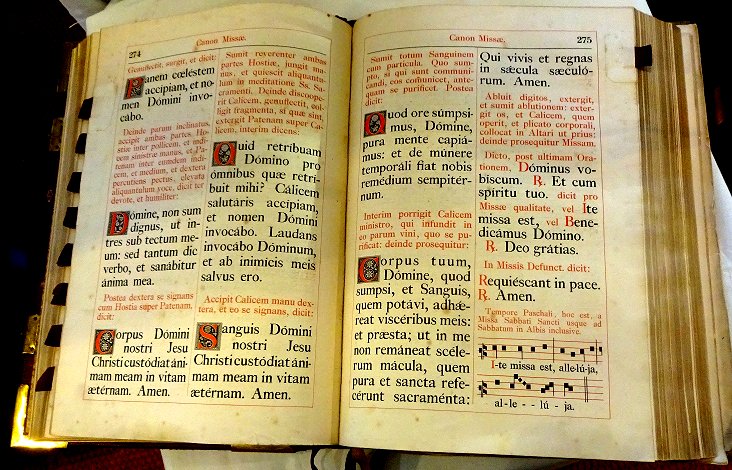 274
Canon Missæ.
Genuflectit, surgit, et dicit:
Panem cœléstem
accípiam, et no-
men Dómini invo-
cábo.
Deinde parum inclinatus,
accipit ambas partes Ho-
stiæ inter pollicem, et indi-
cem sinistræ manus, et Pa-
tenam inter eumdem indi-
cem, et medium, et dextera
percutiens pectus, elevata
aliquantulum voce, dicit ter
devote, et humiliter:
Dómine, non sum
dignus, ut in-
tres sub tectum me-
um: sed tantum dic
verbo, et sanábitur
ánima mea.
Postea dextera se signans
cum Hostia super Patenam,
dicit:
Corpus Dómini
nostri Jesu
Christi custódiat áni-
mam meam in vitam
ætérnam. Amen.
Sumit reverenter ambas
partes Hostiæ, jungit ma-
nus, et quiescit aliquantu-
lum in meditatione Ss. Sa-
cramenti. Deinde discoope-
rit Calicem, genuflectit, col-
ligit fragmenta, si quæ sint,
extergit Patenam super Ca-
licem, interim dicens:
Quid retríbuam
Dómino pro
ómnibus quæ retrí-
buit mihi? Cálicem
salutáris accípiam,
et nomen Dómini
invocábo. Laudans
invocábo Dóminum,
et ab inimícis meis
salvus ero.
Accipit Calicem manu dex-
tera, et eo se signans, dicit:
Sanguis Dómini
nostri Jesu
Christi custódiat áni-
mam meam in vitam
ætérnam. Amen.
Canon Missæ.
275
Sumit totum Sanguinem
cum particula. Quo sum-
pto, si qui sunt communi-
candi, eos communicet, ante-
quam se purificet. Postea
dicit:
Quod ore súmpsi-
mus, Dómine,
pura mente capiá-
mus: et de múnere
temporáli fiat nobis
remédium sempitér-
num.
Interim porrigit Calicem
ministro, qui infundit in
eo parum vini, quo se pu-
rificat: deinde prosequitur:
Corpus tuum,
Dómine, quod
sumpsi, et Sanguis,
quem potávi, adhǽ-
reat viscéribus meis:
et præsta; ut in me
non remáneat scéle-
rum mácula, quem
pura et sancta refe-
cérunt sacraménta:
Qui vivis et regnas
in sǽcula sæculó-
rum. Amen.
Abluit digitos, extergit,
et sumit ablutionem: exter-
git os, et Calicem, quem
operit, et plicato corporali,
collocat in Altari ut prius:
deinde prosequitur Missam.
Dicto, post ultimam Ora-
tionem, Dóminus vo-
bíscum. R. Et cum
spíritu tuo. dicit pro
Missæ qualitate, vel Ite
missa est, vel Bene-
dicámus Dómino.
R. Deo grátias.
In Missis Defunct. dicit:
Requiéscant in pace.
R. Amen.
Tempore Paschali, hoc est, a
Missa Sabbati Sancti usque ad
Sabbatum in Albis inclusive.
I-te missa est, allelúja,
al-le - - lú - ja.